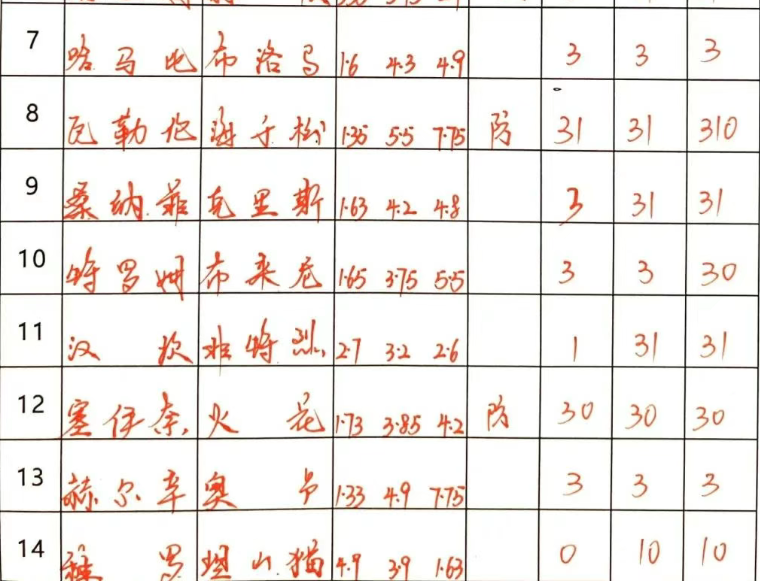 7 哈马比 布洛马 1.6 4.3 4.9 3 3 3
8 瓦勒伦 海于松 1.35 5.5 7.75 防 31 31 310
9 桑纳菲 克里斯 1.63 4.2 4.8 3 31 31
10 特罗姆 布莱尼 1.65 3.75 5.5 3 3 30
11 汉坎 菲特烈 2.7 3.2 2.6 1 31 31
12 塞伊奈 火花 1.73 3.85 4.2 防 30 30 30
13 赫尔辛 奥卢 1.33 4.9 7.75 3 3 3
14 雅罗 坦山猫 4.9 3.9 1.63 0 10 10